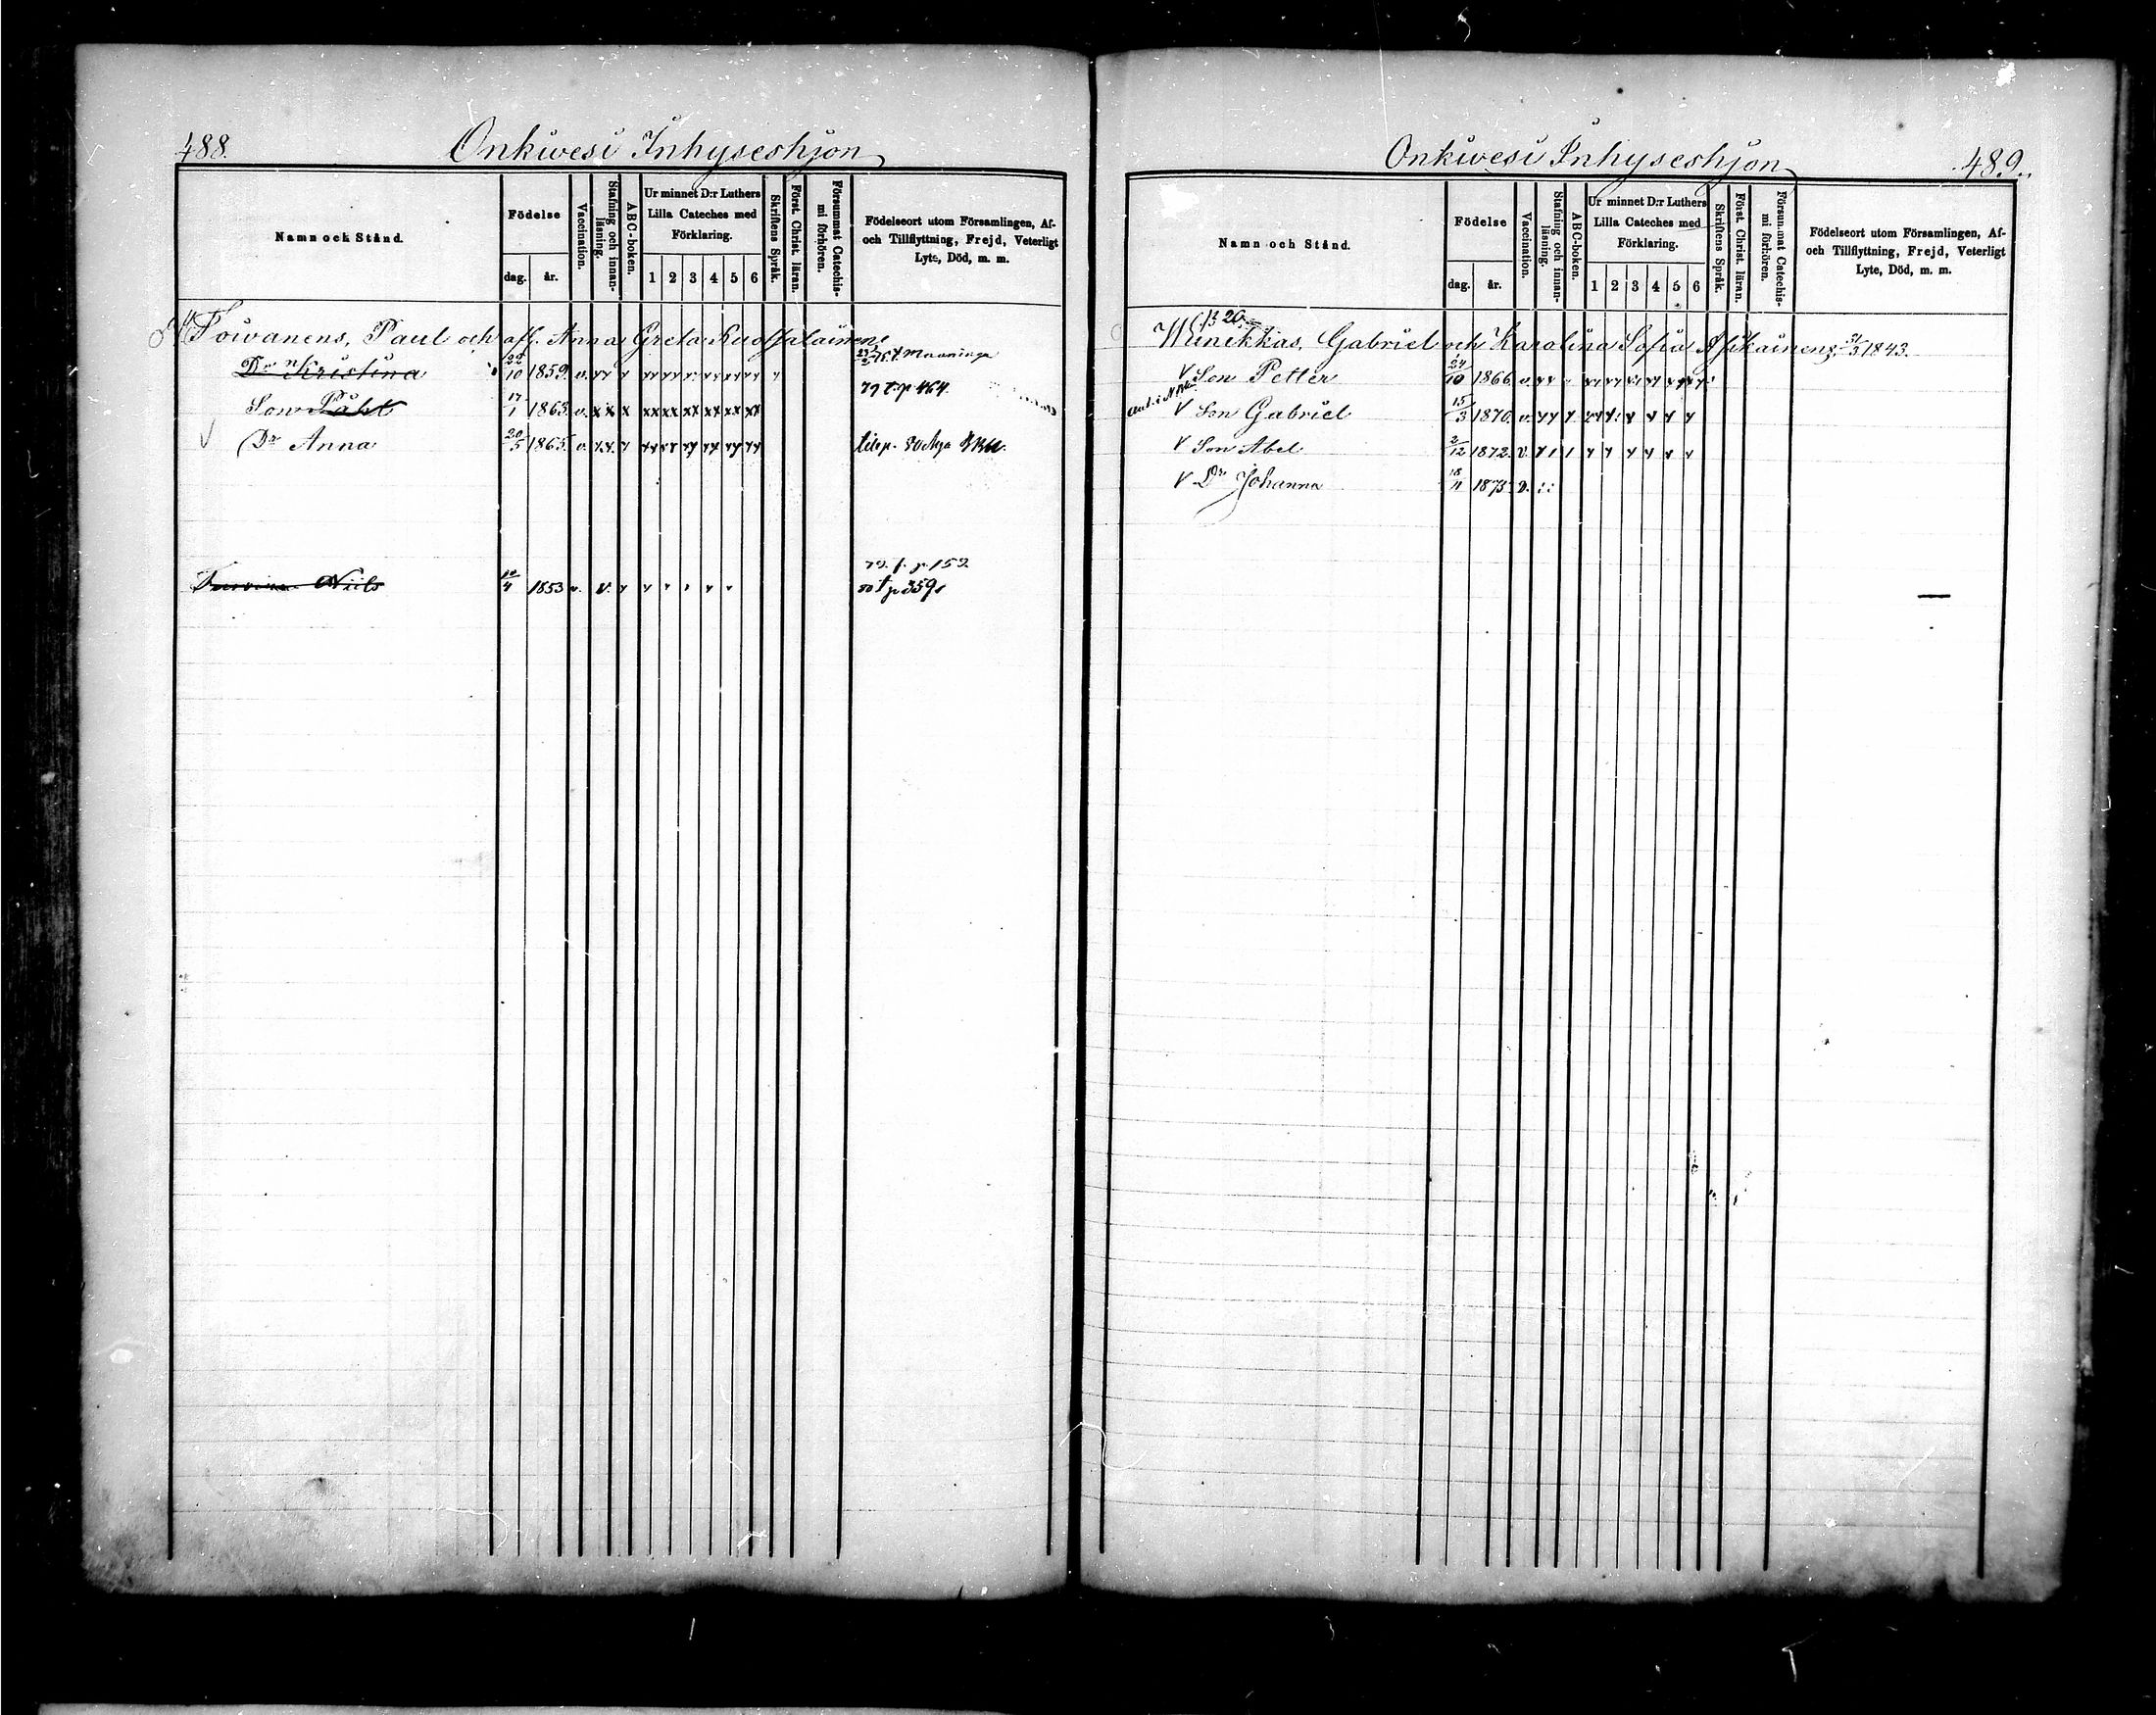 488.
Onkivesi Inhyseshjon
Namn och Stånd.
Födelse
dag. år.
Vaccination.
Stafning och innanläsning.
ABC-boken.
Ur minnet D:r Luthers
Lilla Cateches med
Förklaring.
1 2 3 4 5 6
Skriftens Språk.
Först. Christ. läran.
Försummat Catechismi förhören.
Födelseort utom Församlingen, Af-
och Tillflyttning, Frejd, Veterligt
Lyte, Död, m. m.
Toivanens, Paul och afl. Anna Greta Ruotsalainens
Dr Kristina 22/10 1859. v. Maaninga
79 t. p 464.
Son Påhl 17/1 1863. v. xx x xx xx xx xx xx xx
V Dr Anna 20/5 1865. v.
Niils 10/4 1853 v. v.
79. f. p 152
80 t p 359
Onkivesi Inhyseshjon
489.
Namn och Stånd.
Födelse
dag. år.
Vaccination.
Stafning och innanläsning.
ABC-boken.
Ur minnet D:r Luthers
Lilla Cateches med
Förklaring.
1 2 3 4 5 6
Skriftens Språk.
Först. Christ. läran.
Försummat Catechismi förhören.
Födelseort utom Församlingen, Af-
och Tillflyttning, Frejd, Veterligt
Lyte, Död, m. m.
Gabriel och Karolina Sofia 1843.
V Son Petter 24/10 1866 v.
V Son Gabriel 15/3 1870. v.
V Son Abel 2/12 1872. v.
V Dr Johanna 18/11 1875 v.